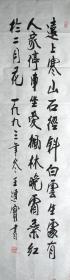 遠上寒山石徑斜白雲生處有
人家停車坐愛楓林晚霜葉紅
於二月花 一九九三年冬王書